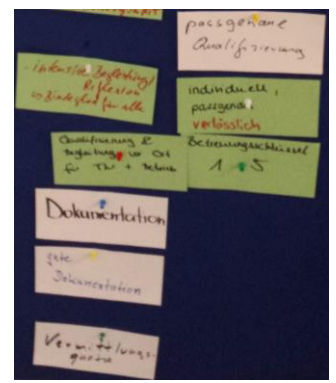 passgenaue
Qualifizierung
- intensive Begleitung/
Reflexion
individuell,
passgenau,
verlässlich
Qualifizierung &
Begleitung vor Ort
für TN + Betrieb
Betreuungsschlüssel
1 : 5
Dokumentation
gute
Dokumentation
Vermittlungs-
quote